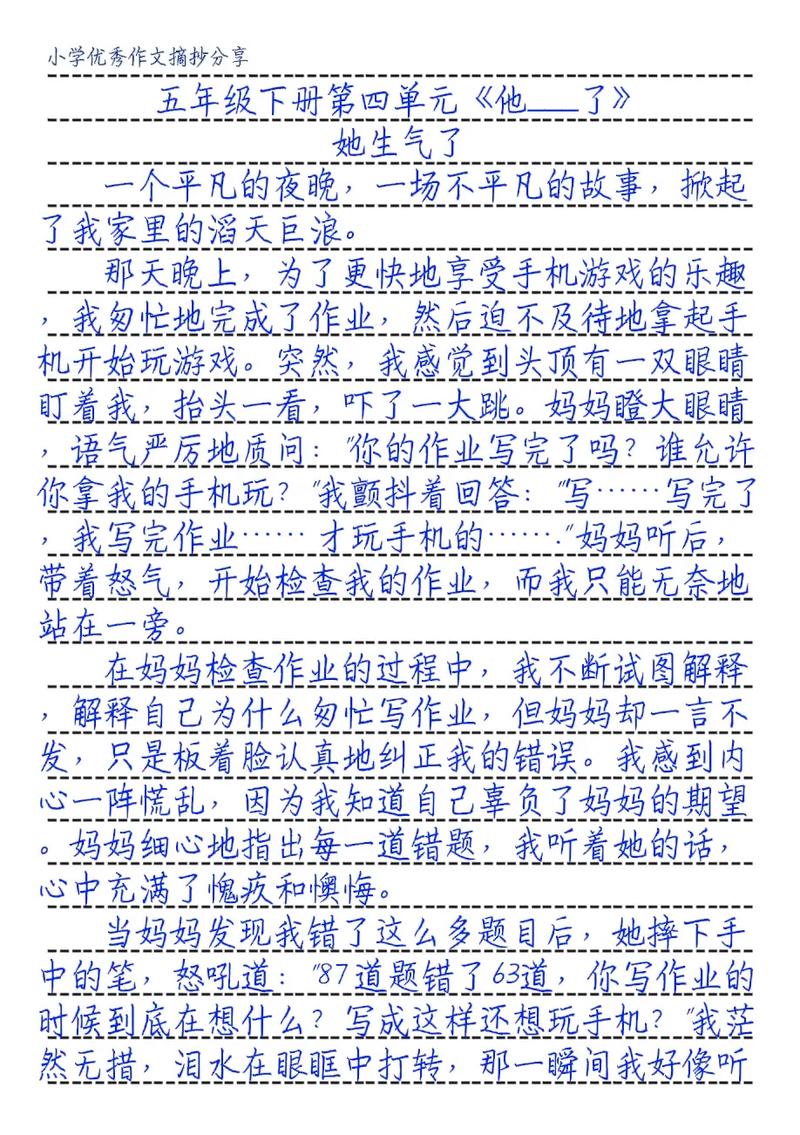 小学优秀作文摘抄分享
五年级下册第四单元《他____了》
她生气了
一个平凡的夜晚，一场不平凡的故事，掀起
了我家里的滔天巨浪。
那天晚上，为了更快地享受手机游戏的乐趣
，我匆忙地完成了作业，然后迫不及待地拿起手
机开始玩游戏。突然，我感觉到头顶有一双眼睛
盯着我，抬头一看，吓了一大跳。妈妈瞪大眼睛
，语气严厉地质问："你的作业写完了吗？谁允许
你拿我的手机玩？"我颤抖着回答："写……写完了
，我写完作业…… 才玩手机的…….."妈妈听后，
带着怒气，开始检查我的作业，而我只能无奈地
站在一旁。
在妈妈检查作业的过程中，我不断试图解释
，解释自己为什么匆忙写作业，但妈妈却一言不
发，只是板着脸认真地纠正我的错误。我感到内
心一阵慌乱，因为我知道自己辜负了妈妈的期望
。妈妈细心地指出每一道错题，我听着她的话，
心中充满了愧疚和懊悔。
当妈妈发现我错了这么多题目后，她摔下手
中的笔，怒吼道："87道题错了63道，你写作业的
时候到底在想什么？写成这样还想玩手机？"我茫
然无措，泪水在眼眶中打转，那一瞬间我好像听